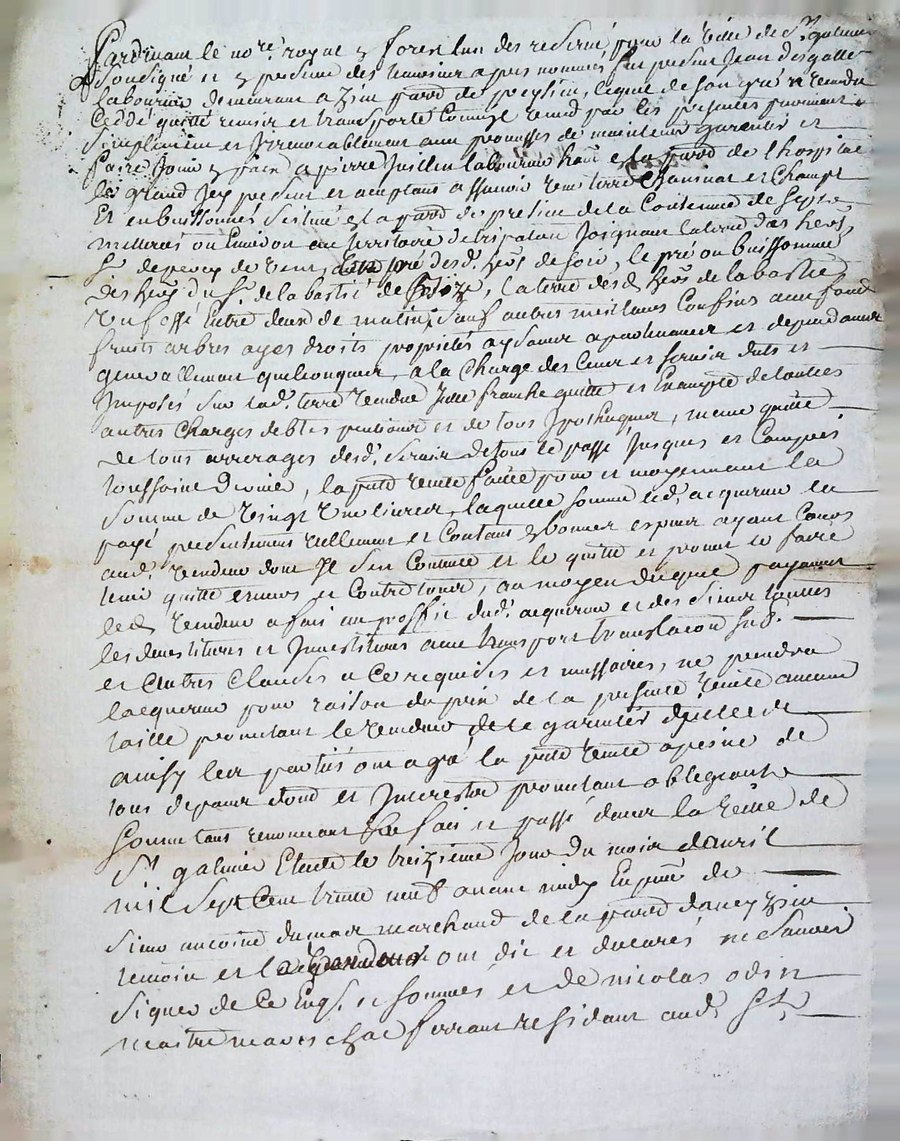 Pardevant le nore royal & forest lun des reservé pour la ville de St galmier
Soussigné et & presence des temoins apres nommes fut present Jean desgalles
laboureur demeurant a parod de lequel de son gré a vendu
ceddé quitté remis et transporté comme vend par les presentes purement
simplement et Irrevocablement aux promesses de maintenir garentir et
faire Jouir & a pierre Juillien laboureur hant & la parod de lhospital
le grand Jcy present et acceptant assavoir une terre et champt
Et en buissonnée située & la parod de de la Contenue de sept
metterés ou Environ au territoire de Joignant la terre des hers
Sr de de vent, pré desd. hers de soir, le pré ou buissonnée
des hers du Sr. de la bastié de bize, la terre desd. hers de la bastié
un fossé Entre deux de matin, sauf autres meilleurs Confins aux fond
fruits arbres ayes droits proprietés aysances apartenances et dependances
generallement quelconques, a la Charge des Cens et servis duts et
Imposés sur lad. terre vendue Jcelle franche quitte et Exempte de toutes
autres Charges debtes pentions et de tous Ipotheques, meme quitte
de tous arrerages desd. servis de tout le passé Jusques et Compris
toussaint dernier, la pnte vente faitte pour et moyennant la
somme de vingt une livres, laquelle somme led. acquereur a
payé presentement reellement et Contant & bonnes especes ayant Cours
aud. vendeur dont Jl sen Contente et le quitte et promet le faire
tenir quitte envers et Contre tous, au moyen duquel payement
led. vendeur a fait au proffit dud. acquereur et des siens toutes
les devestitures et Investitures aux transport translacion sud.
et autres Clauses a ce requises et necessaires, ne prendra
lacquereur pour raison du prix de la presente vente aucune
taille promettant le vendeur de le garentir dicelle
ainsy les partiés ont agréé la pnte vente a peine de
tous depans domd et Interestes promettant obligeants
soumettant renonceant fait et passé dans la ville de
St galmier Etude le treizieme Jour du mois davril
mil sept cent trente neuf avant midy En pnce de
sieur antoine dumas marchand de la parod
temoin et le vendeur ont dit et declarés ne savoir
signer de ce Enqs. et sommés et de nicolas odin
maitre marechal ferrant residant aud. St